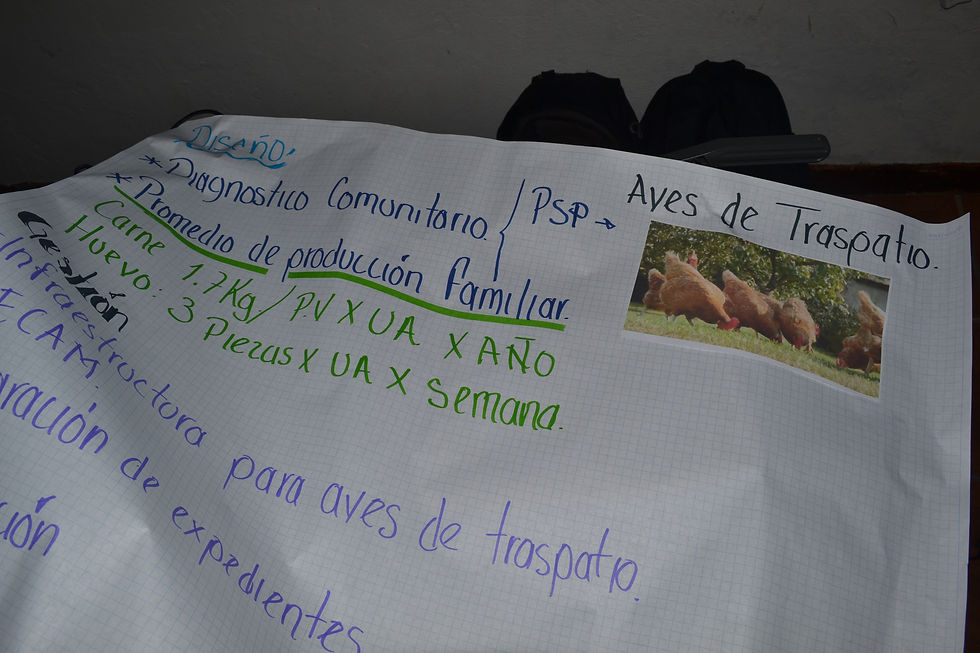 DISEÑO:
* Diagnostico Comunitario. PSP →
Aves de Traspatio.
* Promedio de producción familiar.
Carne 1.7Kg/PV X UA X AÑO
Huevo: 3 Piezas X UA X Semana.
Gestión
Infraestructura para aves de traspatio.
ECAM.
ración de expedientes
ión